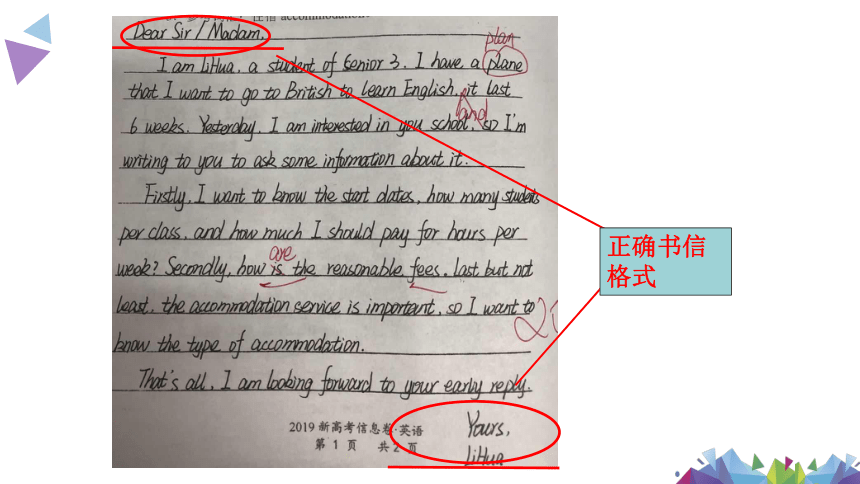 住宿 accommodation
Dear Sir / Madam,
plan
I am LiHua, a student of Senior 3. I have a plane
that I want to go to British to learn English, it last
and
6 weeks. Yesterday, I am interested in you school, so I'm
writing to you to ask some information about it.
Firstly, I want to know the start dates, how many students
per class, and how much I should pay for hours per
are
week? Secondly, how is the reasonable fees. Last but not
least, the accommodation service is important, so I want to
know the type of accommodation.
That's all, I am looking forward to your early reply.
2019新高考信息卷·英语
第 1 页 共 2 页
Yours,
LiHua
正确书信
格式